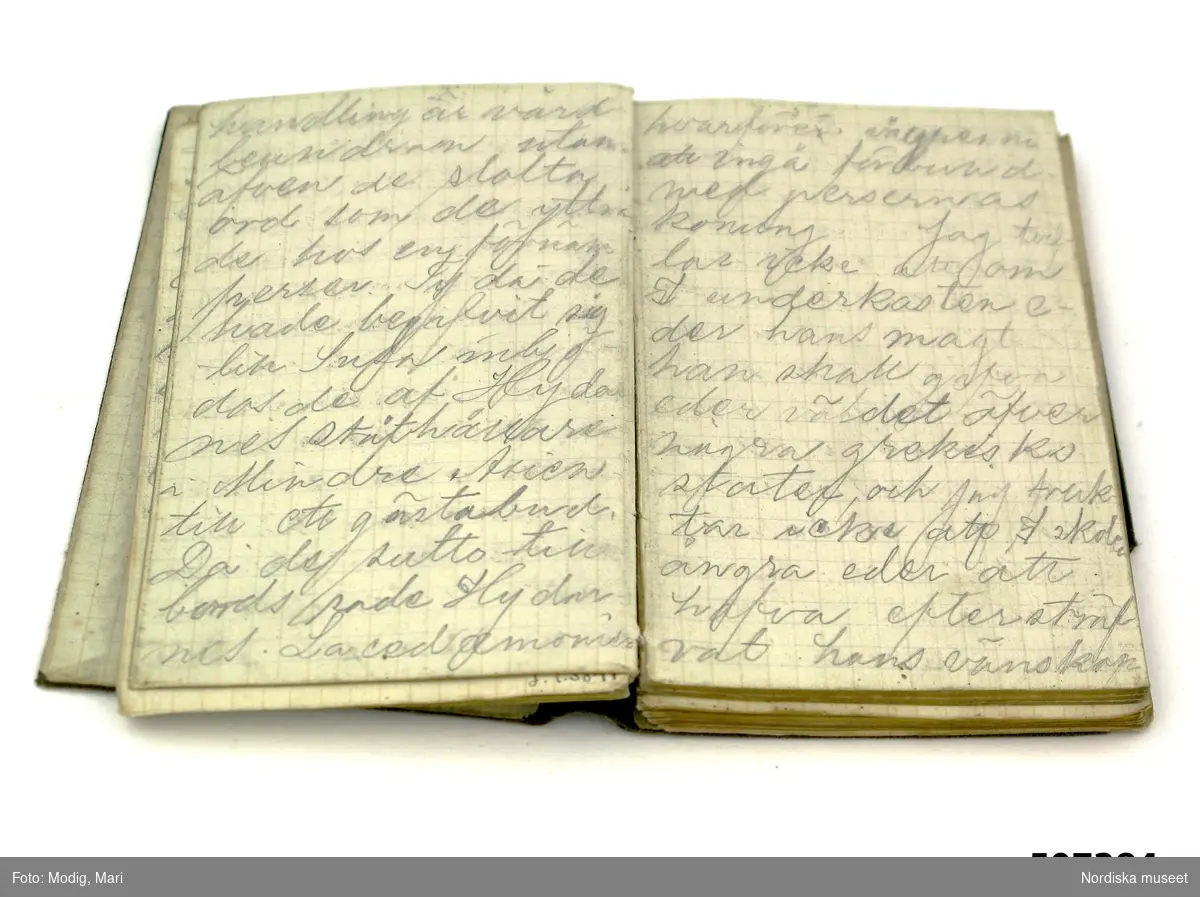 handling är värd
beundran utan
äfven de stolta
ord som de yttra
de hos en förnäm
perser. Ty då de
hade begifvit sig
till Susa inbjö
dos de af Hydar
nes ståthållare
i Mindre Asien
till ett gästabud.
Då de sutto till
bords sade Hydar
nes. Lacedæmonier
hvarföre vägren ni
att ingå förbund
med persernas
konung Jag tvif
lar icke att om
I underkasten e-
der hans magt
han skall gifva
eder väldet öfver
några grekiska
stater, och jag fruk
tar icke att I skolen
ångra eder att
hafva eftersträf
vat hans vänskap
Foto: Modig, Mari
Nordiska museet